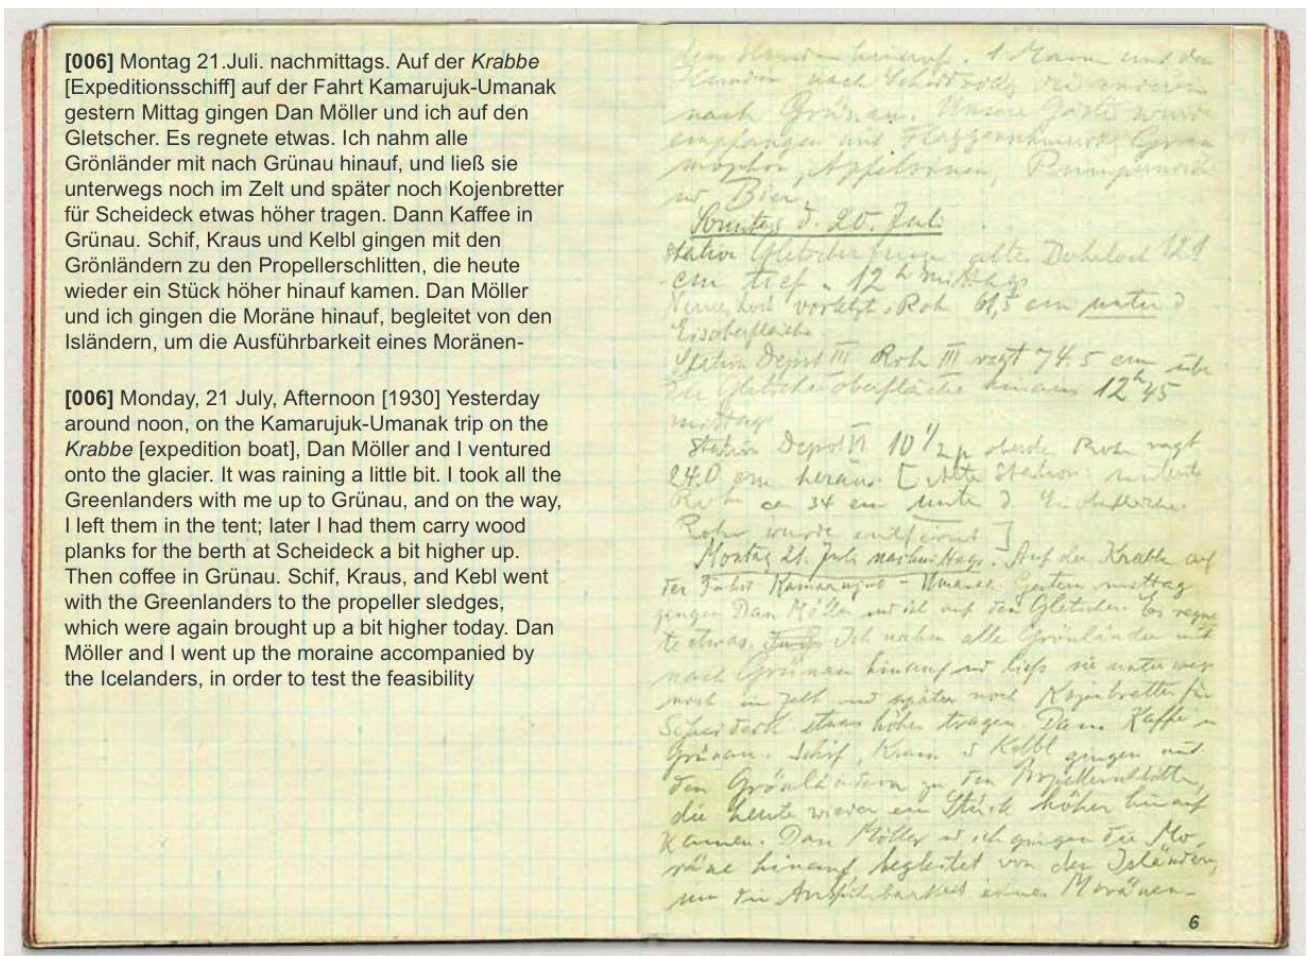 [006] Montag 21.Juli. nachmittags. Auf der Krabbe
[Expeditionsschiff] auf der Fahrt Kamarujuk-Umanak
gestern Mittag gingen Dan Möller und ich auf den
Gletscher. Es regnete etwas. Ich nahm alle
Grönländer mit nach Grünau hinauf, und ließ sie
unterwegs noch im Zelt und später noch Kojenbretter
für Scheideck etwas höher tragen. Dann Kaffee in
Grünau. Schif, Kraus und Kelbl gingen mit den
Grönländern zu den Propellerschlitten, die heute
wieder ein Stück höher hinauf kamen. Dan Möller
und ich gingen die Moräne hinauf, begleitet von den
Isländern, um die Ausführbarkeit eines Moränen-
[006] Monday, 21 July, Afternoon [1930] Yesterday
around noon, on the Kamarujuk-Umanak trip on the
Krabbe [expedition boat], Dan Möller and I ventured
onto the glacier. It was raining a little bit. I took all the
Greenlanders with me up to Grünau, and on the way,
I left them in the tent; later I had them carry wood
planks for the berth at Scheideck a bit higher up.
Then coffee in Grünau. Schif, Kraus, and Kebl went
with the Greenlanders to the propeller sledges,
which were again brought up a bit higher today. Dan
Möller and I went up the moraine accompanied by
the Icelanders, in order to test the feasibility
den Hunden hinauf. 1 Mann und die
Hunden nach Scheideck, die anderen
nach Grünau. Unsere Gäste wurden
empfangen mit Flaggenschmuck, Gram
mophon, Apfelsinen, Pumpernickel
und Bier.
Sonntag d. 20. Juli
Station Gletscher altes Bohrloch 121
cm tief. 12 h mittags
Neues Rohr 61,5 cm unter d
Eisoberfläche
Station Depot III Rohr III ragt 74.5 cm über
die Gletscheroberfläche hinaus 12h 45
mittags
Station Depot VI 10 1/2 p oberste Rohr ragt
24.0 cm heraus. [Alte Station
Rohr ca 34 cm unter d. Eisoberfläche.
Rohr wurde entfernt]
Montag 21. Juli nachmittags. Auf der Krabbe auf
der Fahrt Kamarujuk - Umanak. Gestern mittag
gingen Dan Möller und ich auf den Gletscher. Es regne
te etwas. Ich nahm alle Grönländer mit
nach Grünau hinauf und ließ sie unterwegs
noch im Zelt und später noch Kojenbretter für
Scheideck etwas höher tragen. Dann Kaffee in
Grünau. Schif, Kraus u Kelbl gingen mit
den Grönländern zu den Propellerschlitten,
die heute wieder ein Stück höher hinauf
kamen. Dan Möller u ich gingen die Mo-
räne hinauf, begleitet von den Isländern,
um die Ausführbarkeit eines Moränen-
6